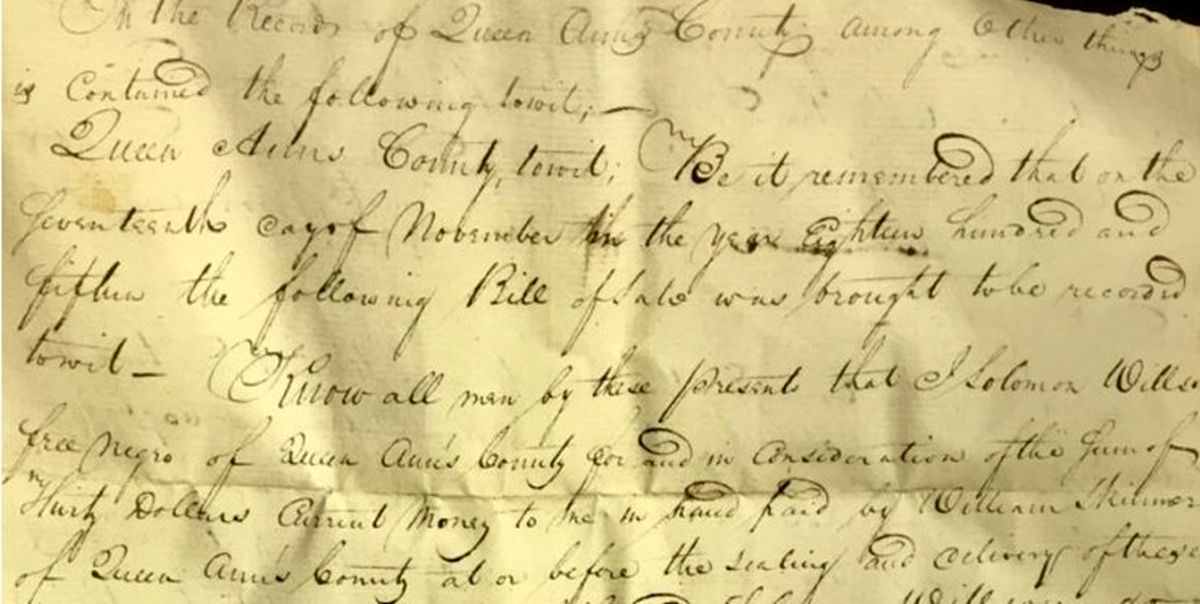 In the Records of Queen Ann's County among Other things
is Contained the following towit; —
Queen Anns County, towit; Be it remembered that on the
Seventeenth day of November in the year Eighteen hundred and
fifteen the following Bill of Sale was brought to be recorded
towit — Know all men by these presents that I Solomon Wills
free Negro of Queen Ann's County for and in Consideration of the Sum of
Thirty Dollars Current Money to me in hand paid by William Skinner
of Queen Ann's County at or before the sealing and delivery of these